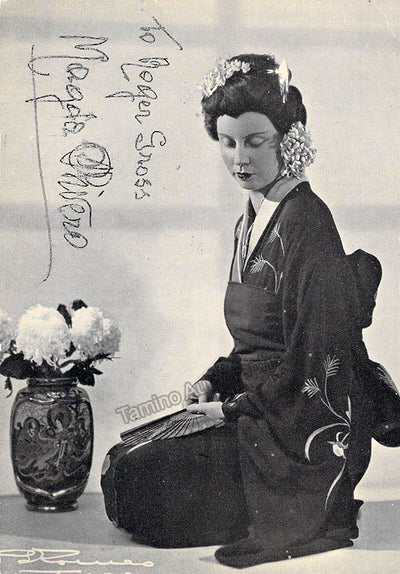 To Roger Gross
Magda Olivero
Tamino Au